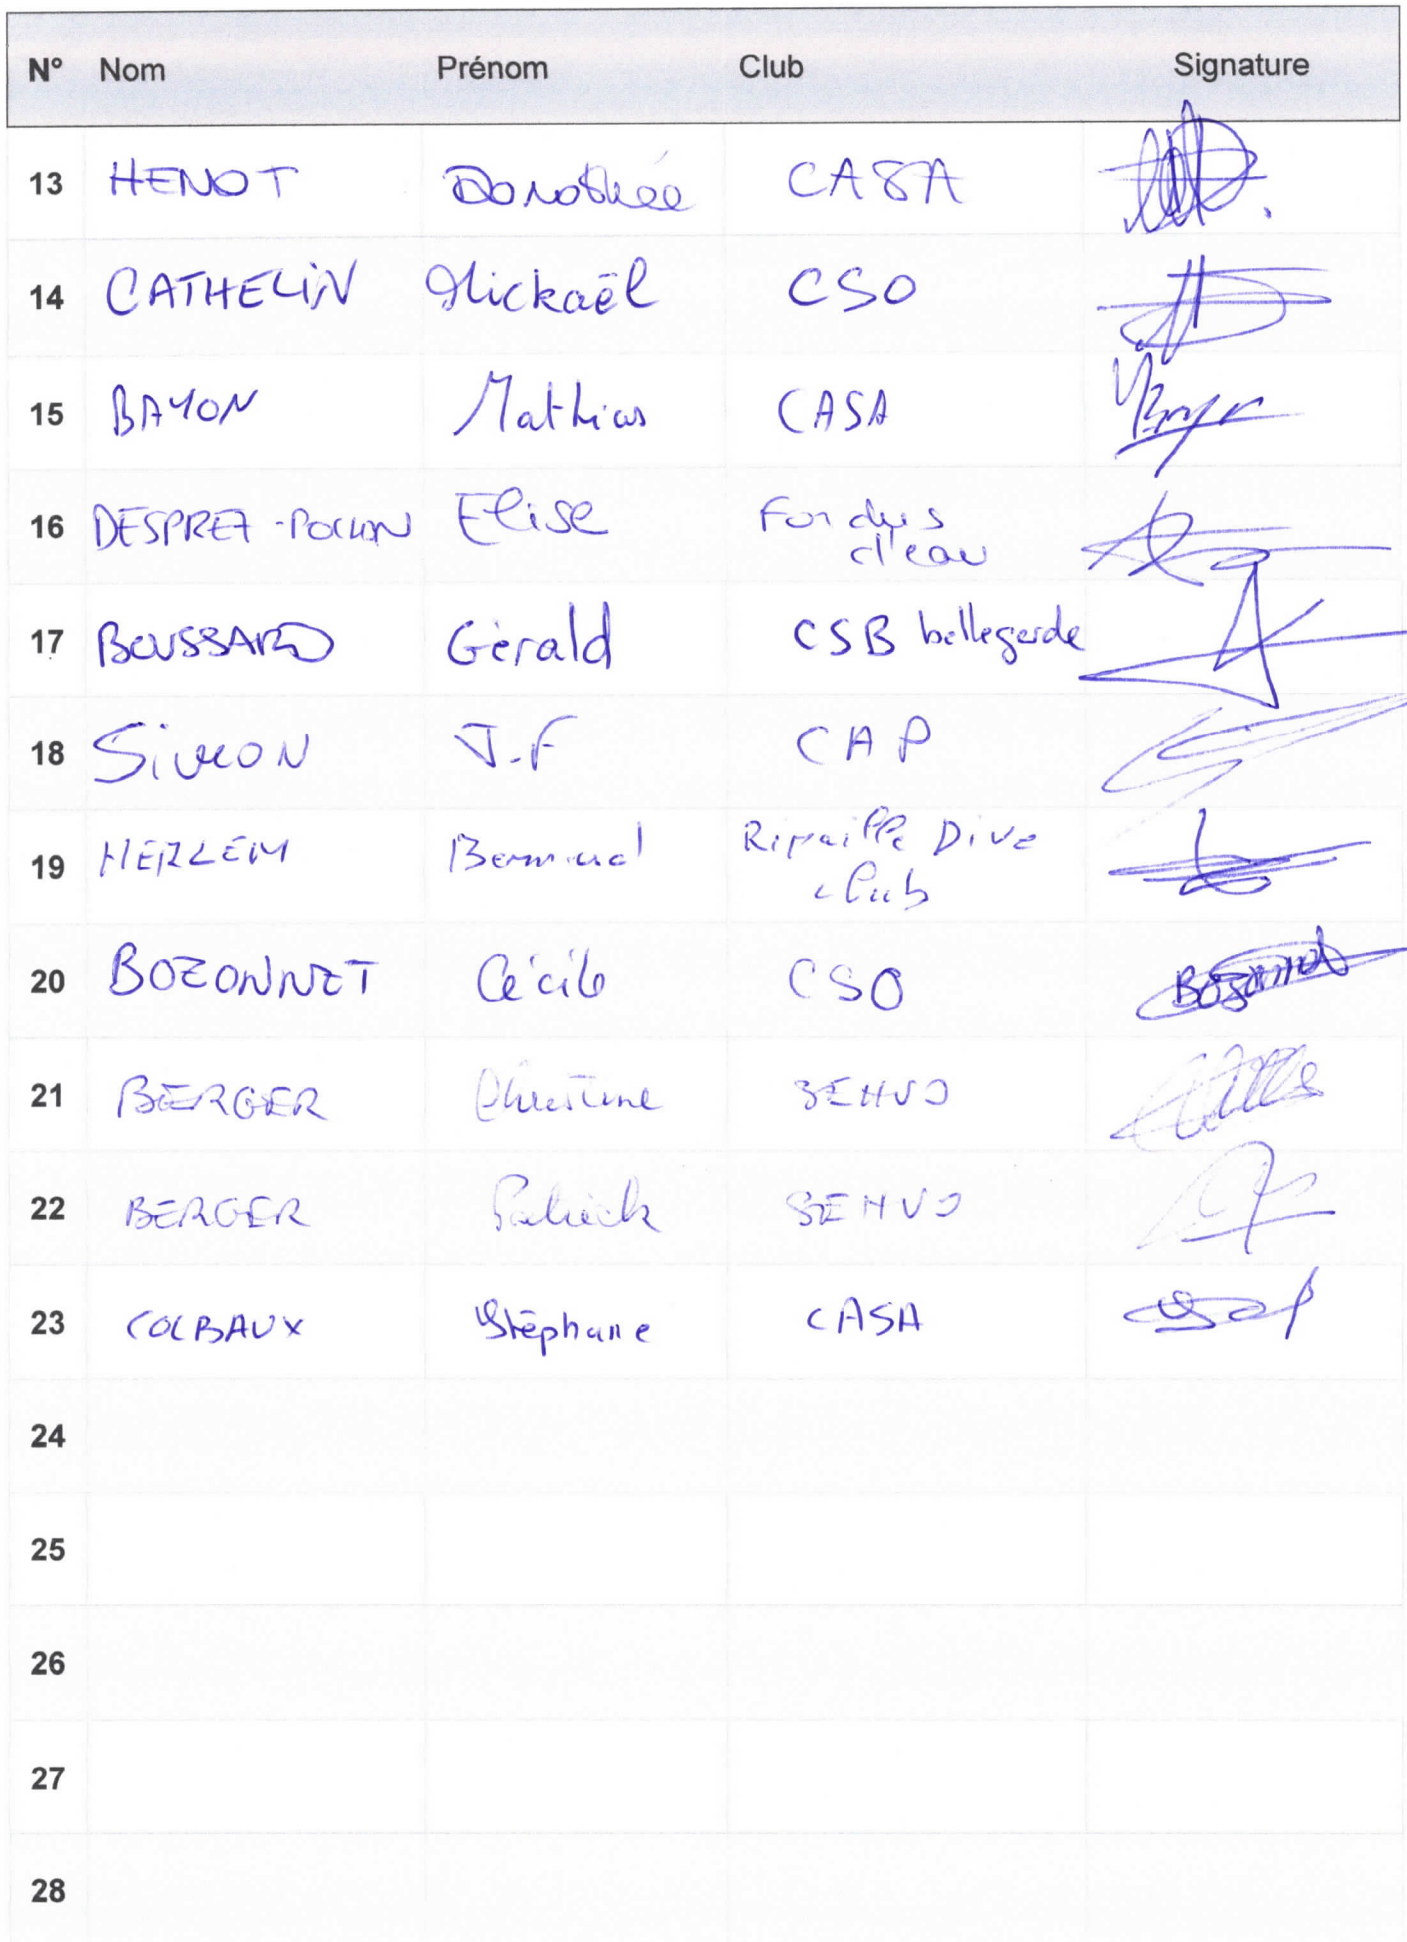 N° Nom Prénom Club Signature
13 HENOT Dorothée CASA
14 CATHELIN Mickaël CSO
15 BAYON Mathias CASA
16 DESPREZ - Elise Fondus
d'eau
17 BOUSSARD Gérald CSB bellegarde
18 SIMON J.F CAP
19 HERLEM Bernard Ripaille Dive
club
20 BOZONNET Cécile CSO Bozonnet
21 BERGER Christine
22 BERGER Patrick
23 COLBAUX Stéphane CASA
24
25
26
27
28